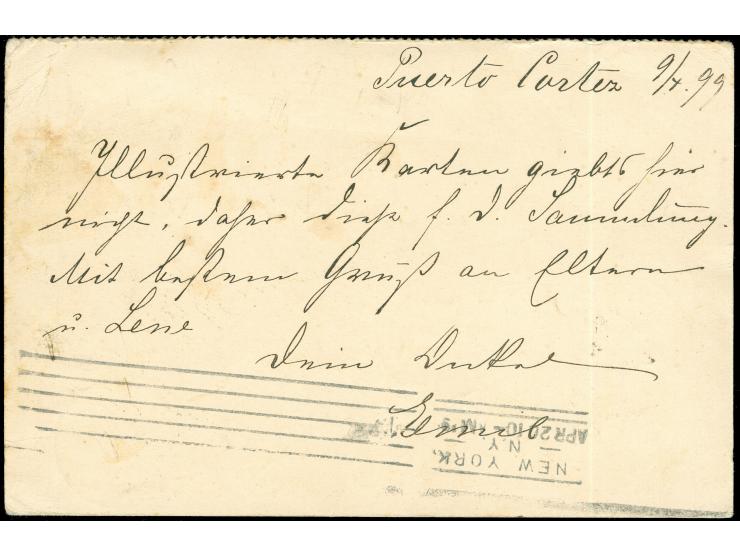 Puerto Cortez 9/4. 99
Illustrierte Karten giebts hier
nicht, daher diese f. d. Sammlung.
Mit bestem Gruß an Eltern
u. Lene
Dein Onkel
Emil
NEW YORK,
N.Y.
APR 20 10